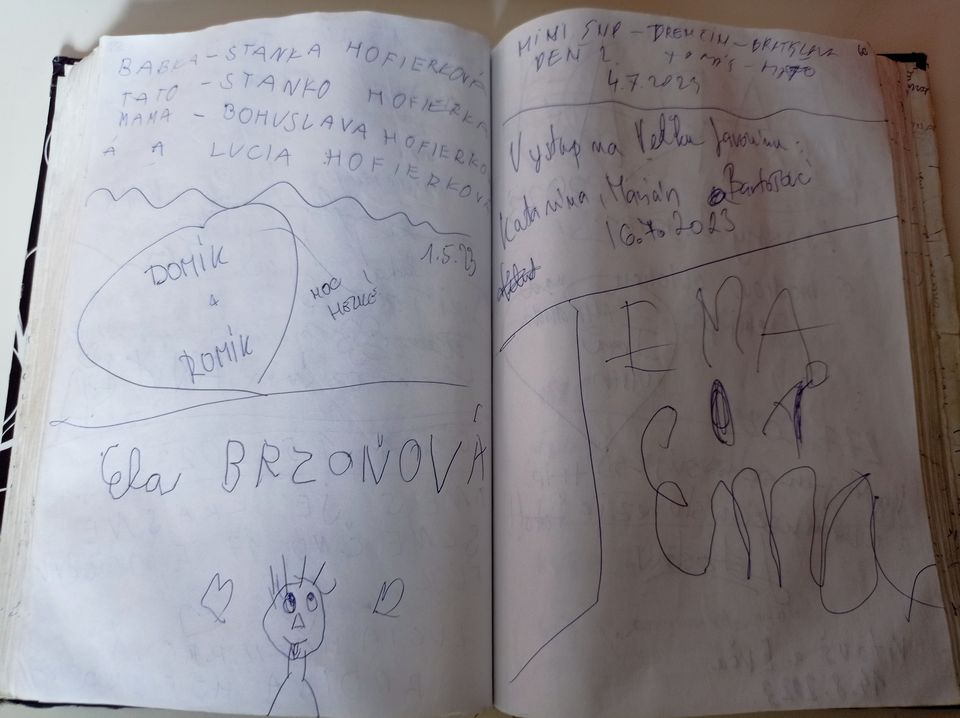 BABKA - STANKA HOFIERKOVÁ
TATO - STANKO HOFIERKA
MAMA - BOHUSLAVA HOFIERKO
A A LUCIA HOFIERKOVÁ
1.5.23
DOMÍK
A
ROMÍK
MOC
Ela BRZOŇOVÁ
MINI SNP - DREMCIM - BRATISLAVA
DEN 2.
4.7.2023
Výstup na Veľkú Javorinu:
Katarína, Marián Bartošák
16.7.2023
EMA
Ema